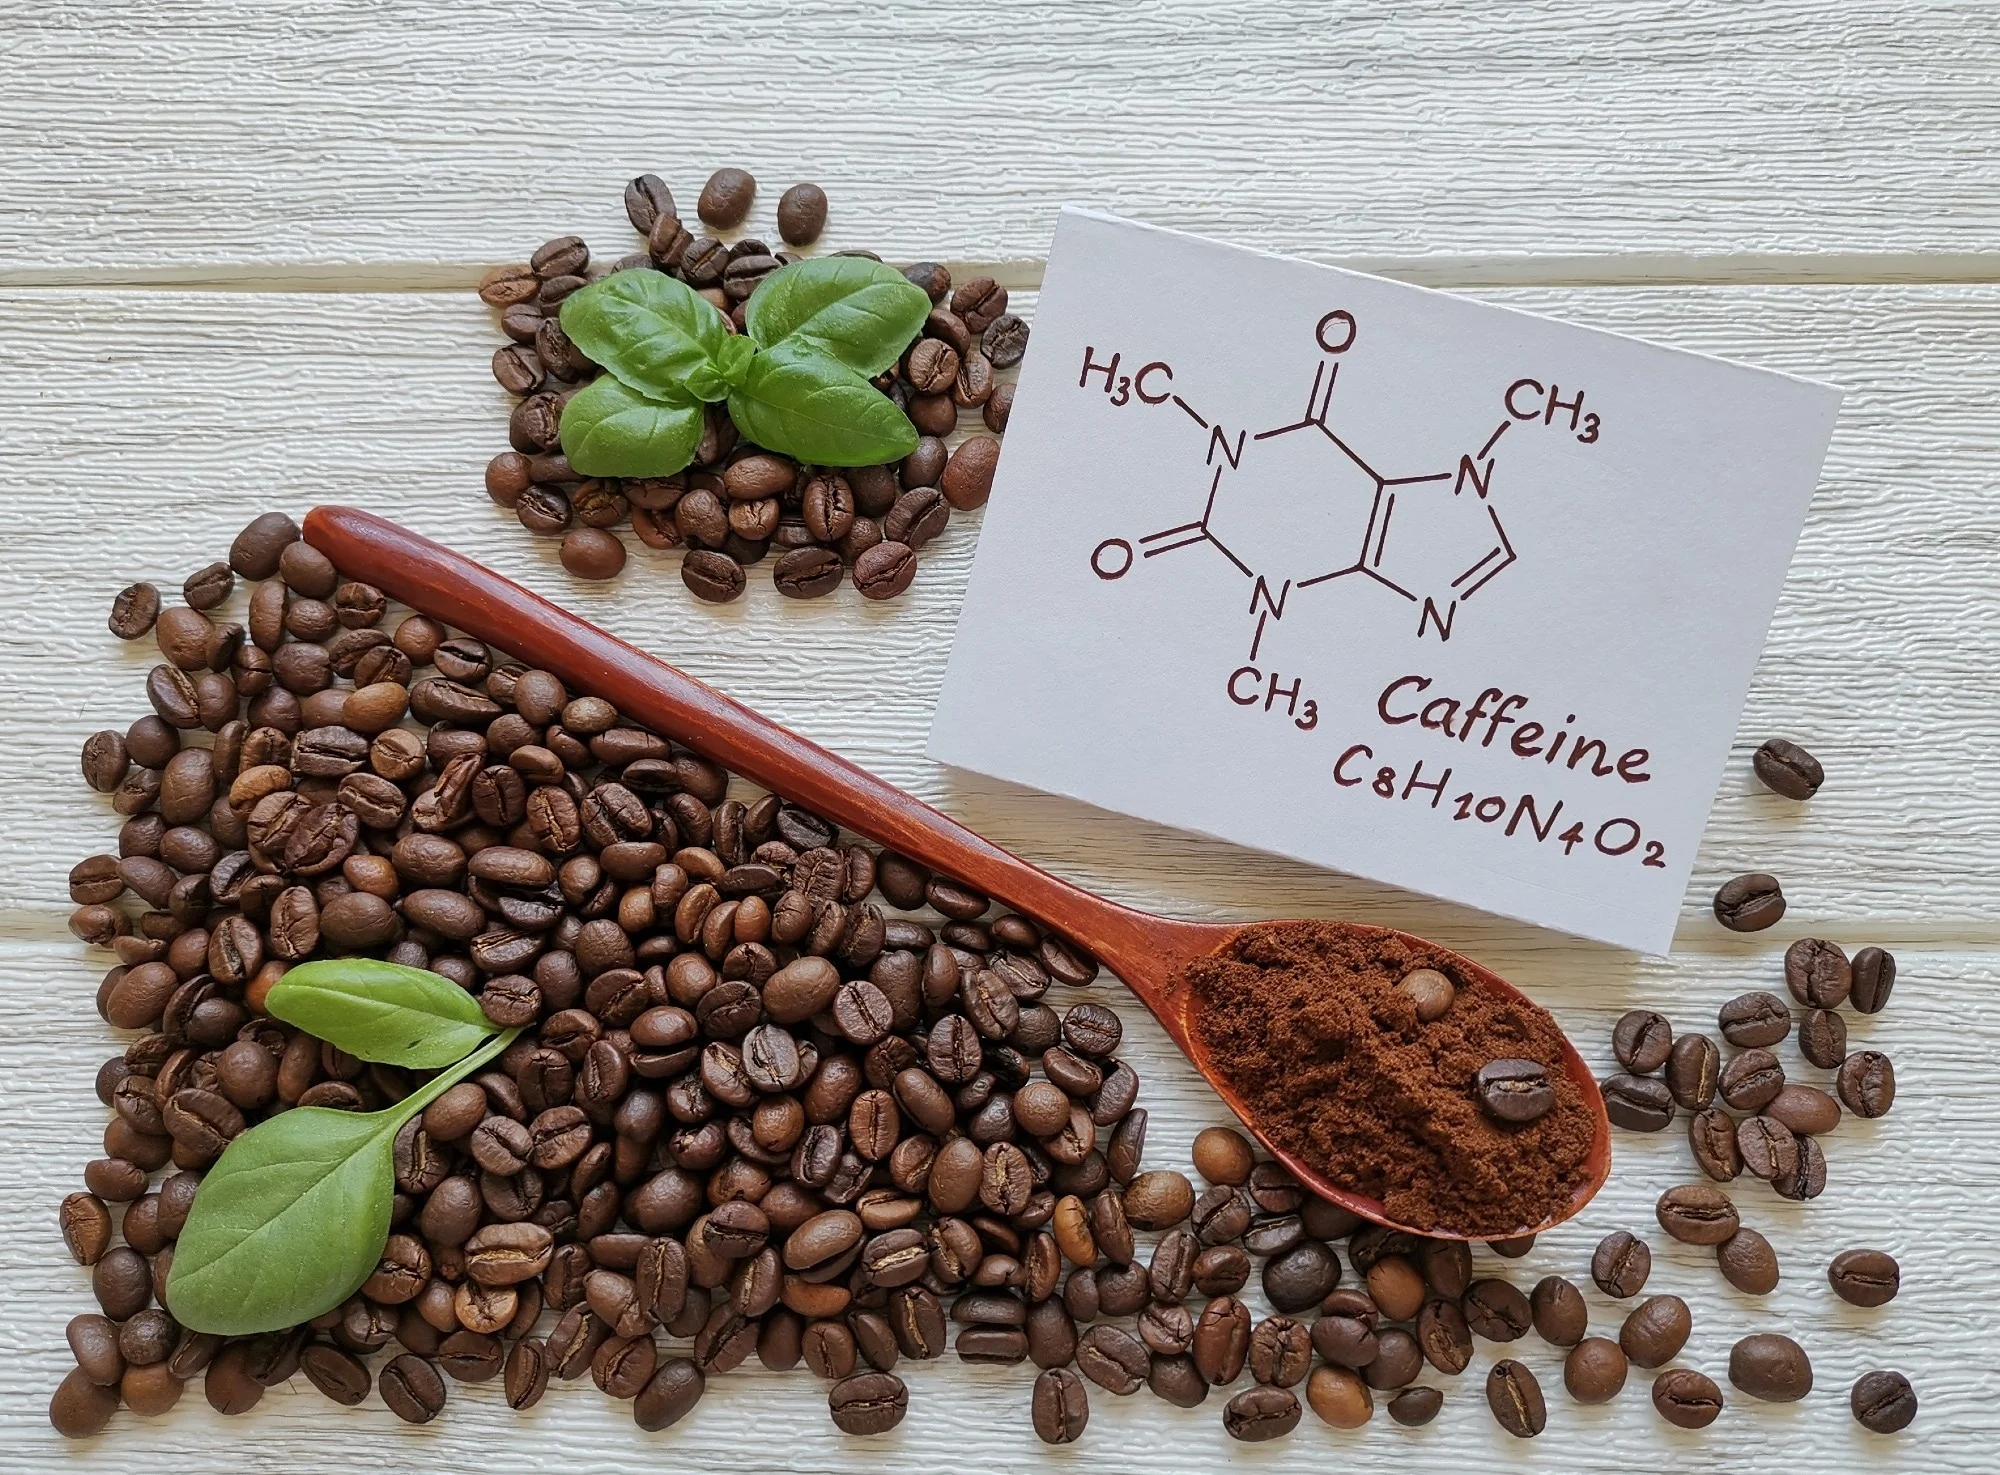 O
H₃C
CH₃
N
N
O
N
N
CH₃
Caffeine
C₈H₁₀N₄O₂